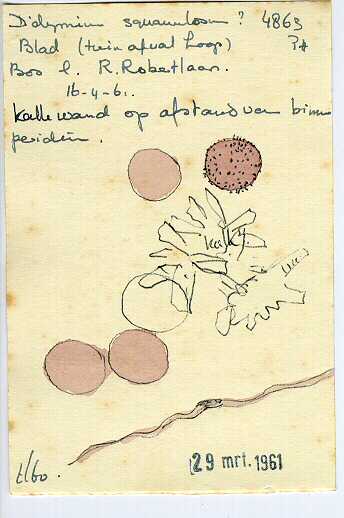 Didymium squamulosum? 4863
Blad (tuin afval hoop)
Bos l. R. Robetlaan.
16-4-61.
Kalkwand op afstand van binnen
peridin.
kalk
t/60.
29 mrt. 1961